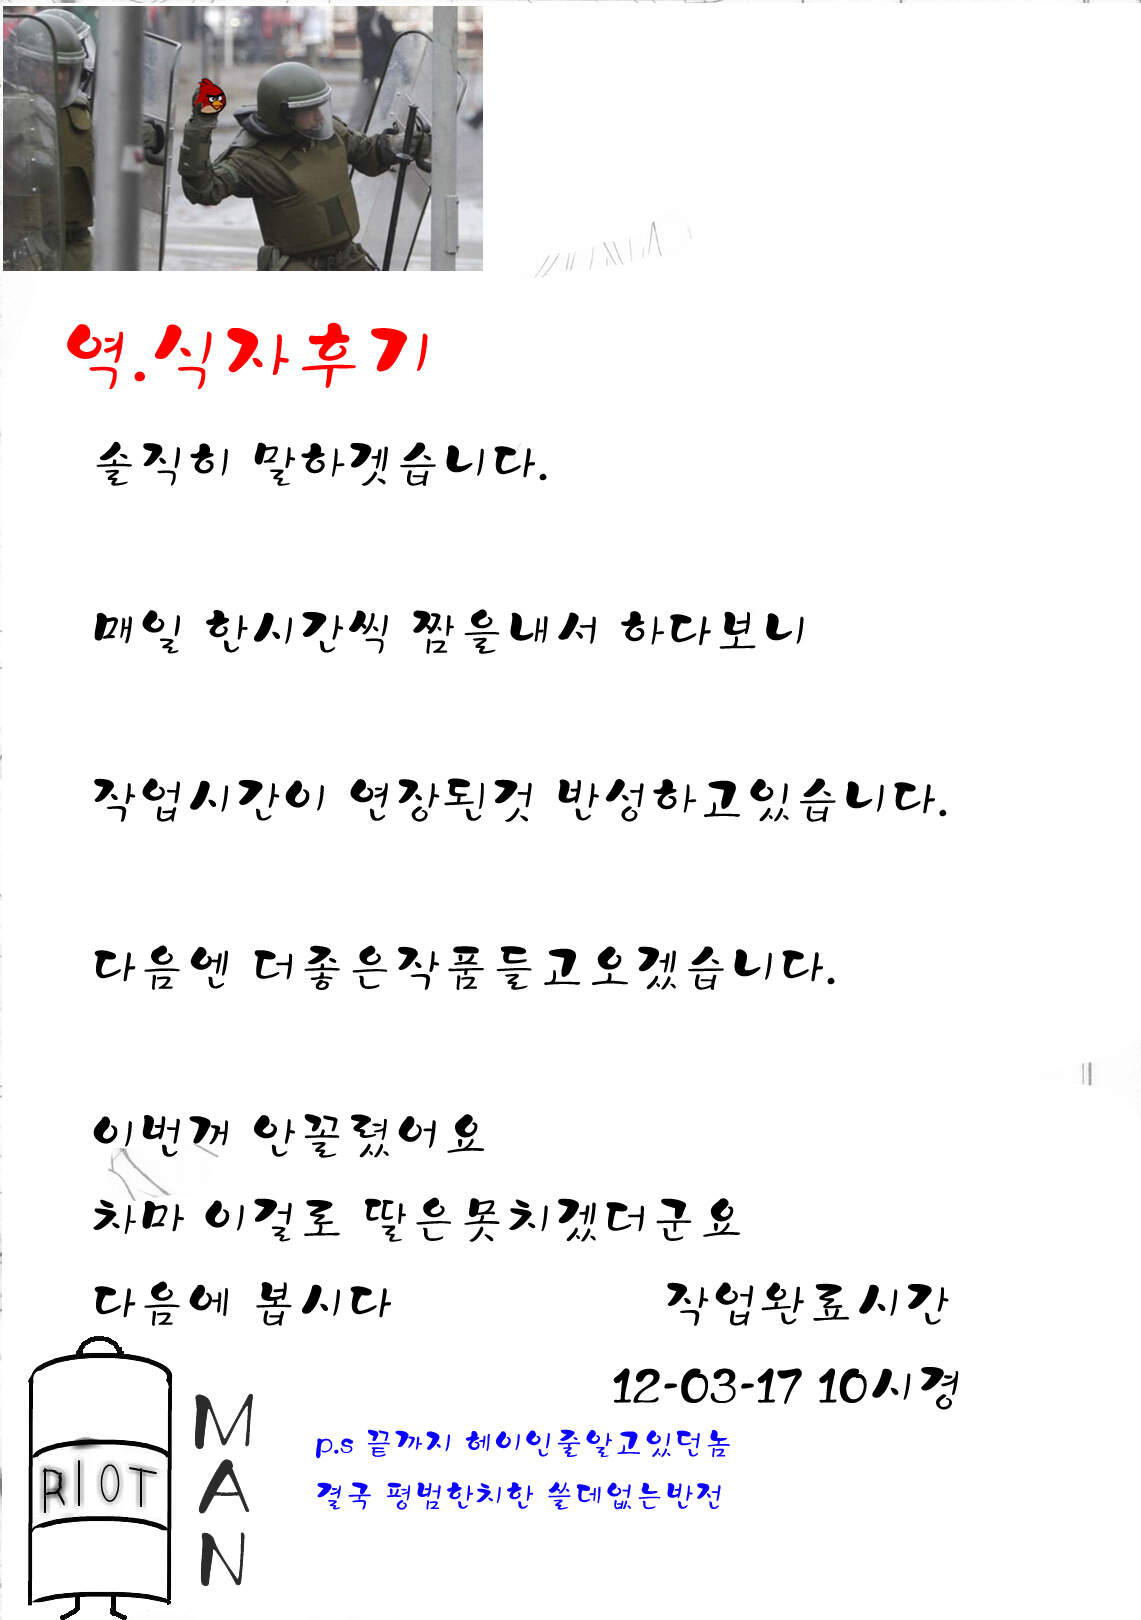 역.식자후기
솔직히 말하겟습니다.
매일 한시간씩 짬을내서 하다보니
작업시간이 연장된것 반성하고있습니다.
다음엔 더좋은작품들고오겠습니다.
이번꺼 안꼴렸어요
차마 이걸로 딸은못치겠더군요
다음에 봅시다 작업완료시간
12-03-17 10시경
p.s 끝까지 헤이인줄알고있던놈
결국 평범한치한 쓸데없는반전
RIOT
MAN